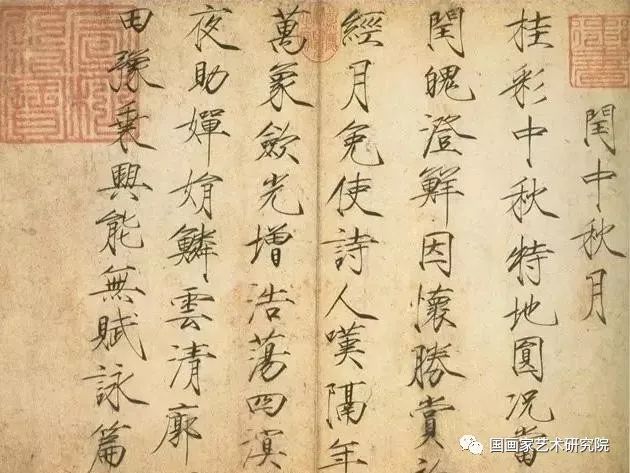 閏中秋月
桂彩中秋特地圓況當
閏魄澄鮮因懷勝賞
經月免使詩人嘆隔年
萬象歛光增浩蕩四溟
夜助嬋娟鱗雲清廓
田豫乘興能無賦詠篇
国画家艺术研究院